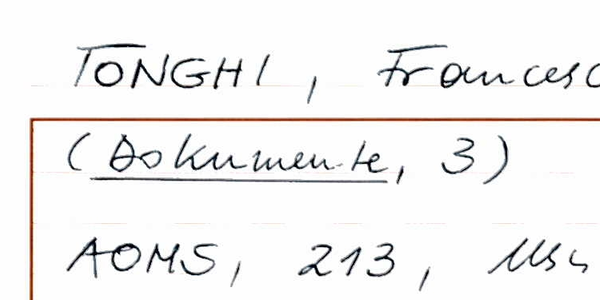 TONGHI, Francesc
(Dokumente, 3)
AOMS, 213,